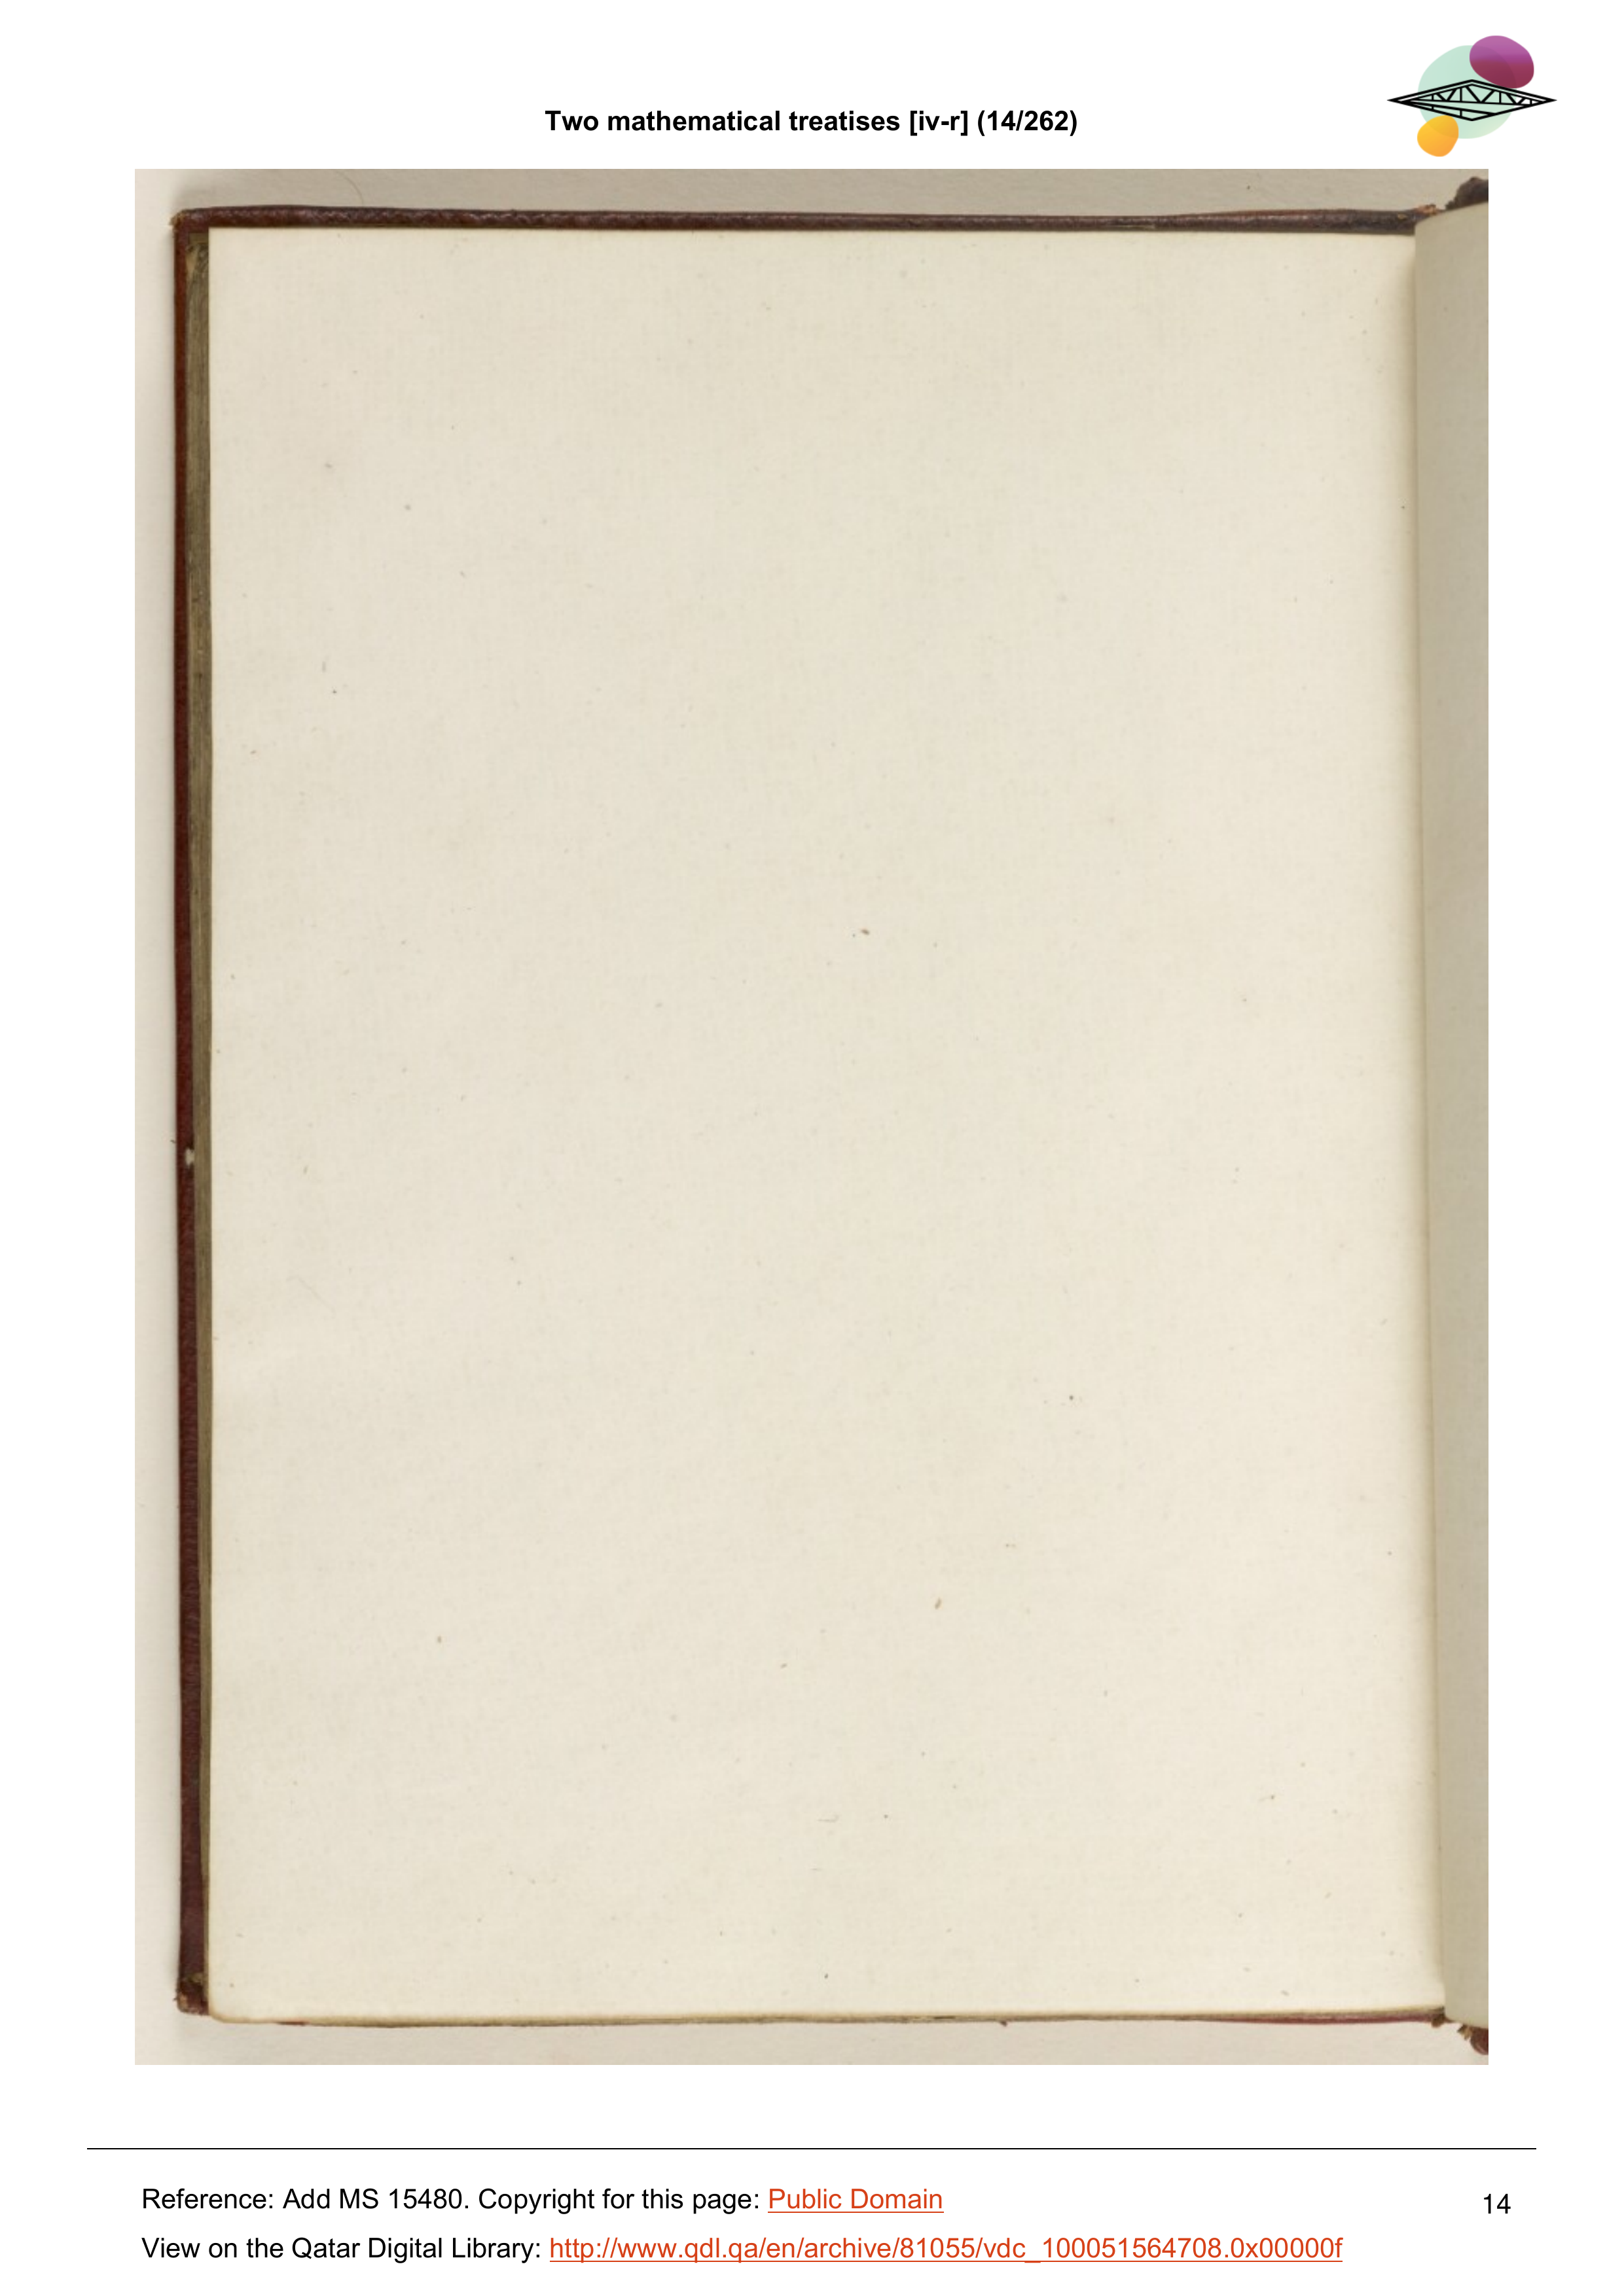 Two mathematical treatises [iv-r] (14/262)
Reference: Add MS 15480. Copyright for this page: Public Domain
14
View on the Qatar Digital Library: http://www.qdl.qa/en/archive/81055/vdc_100051564708.0x00000f